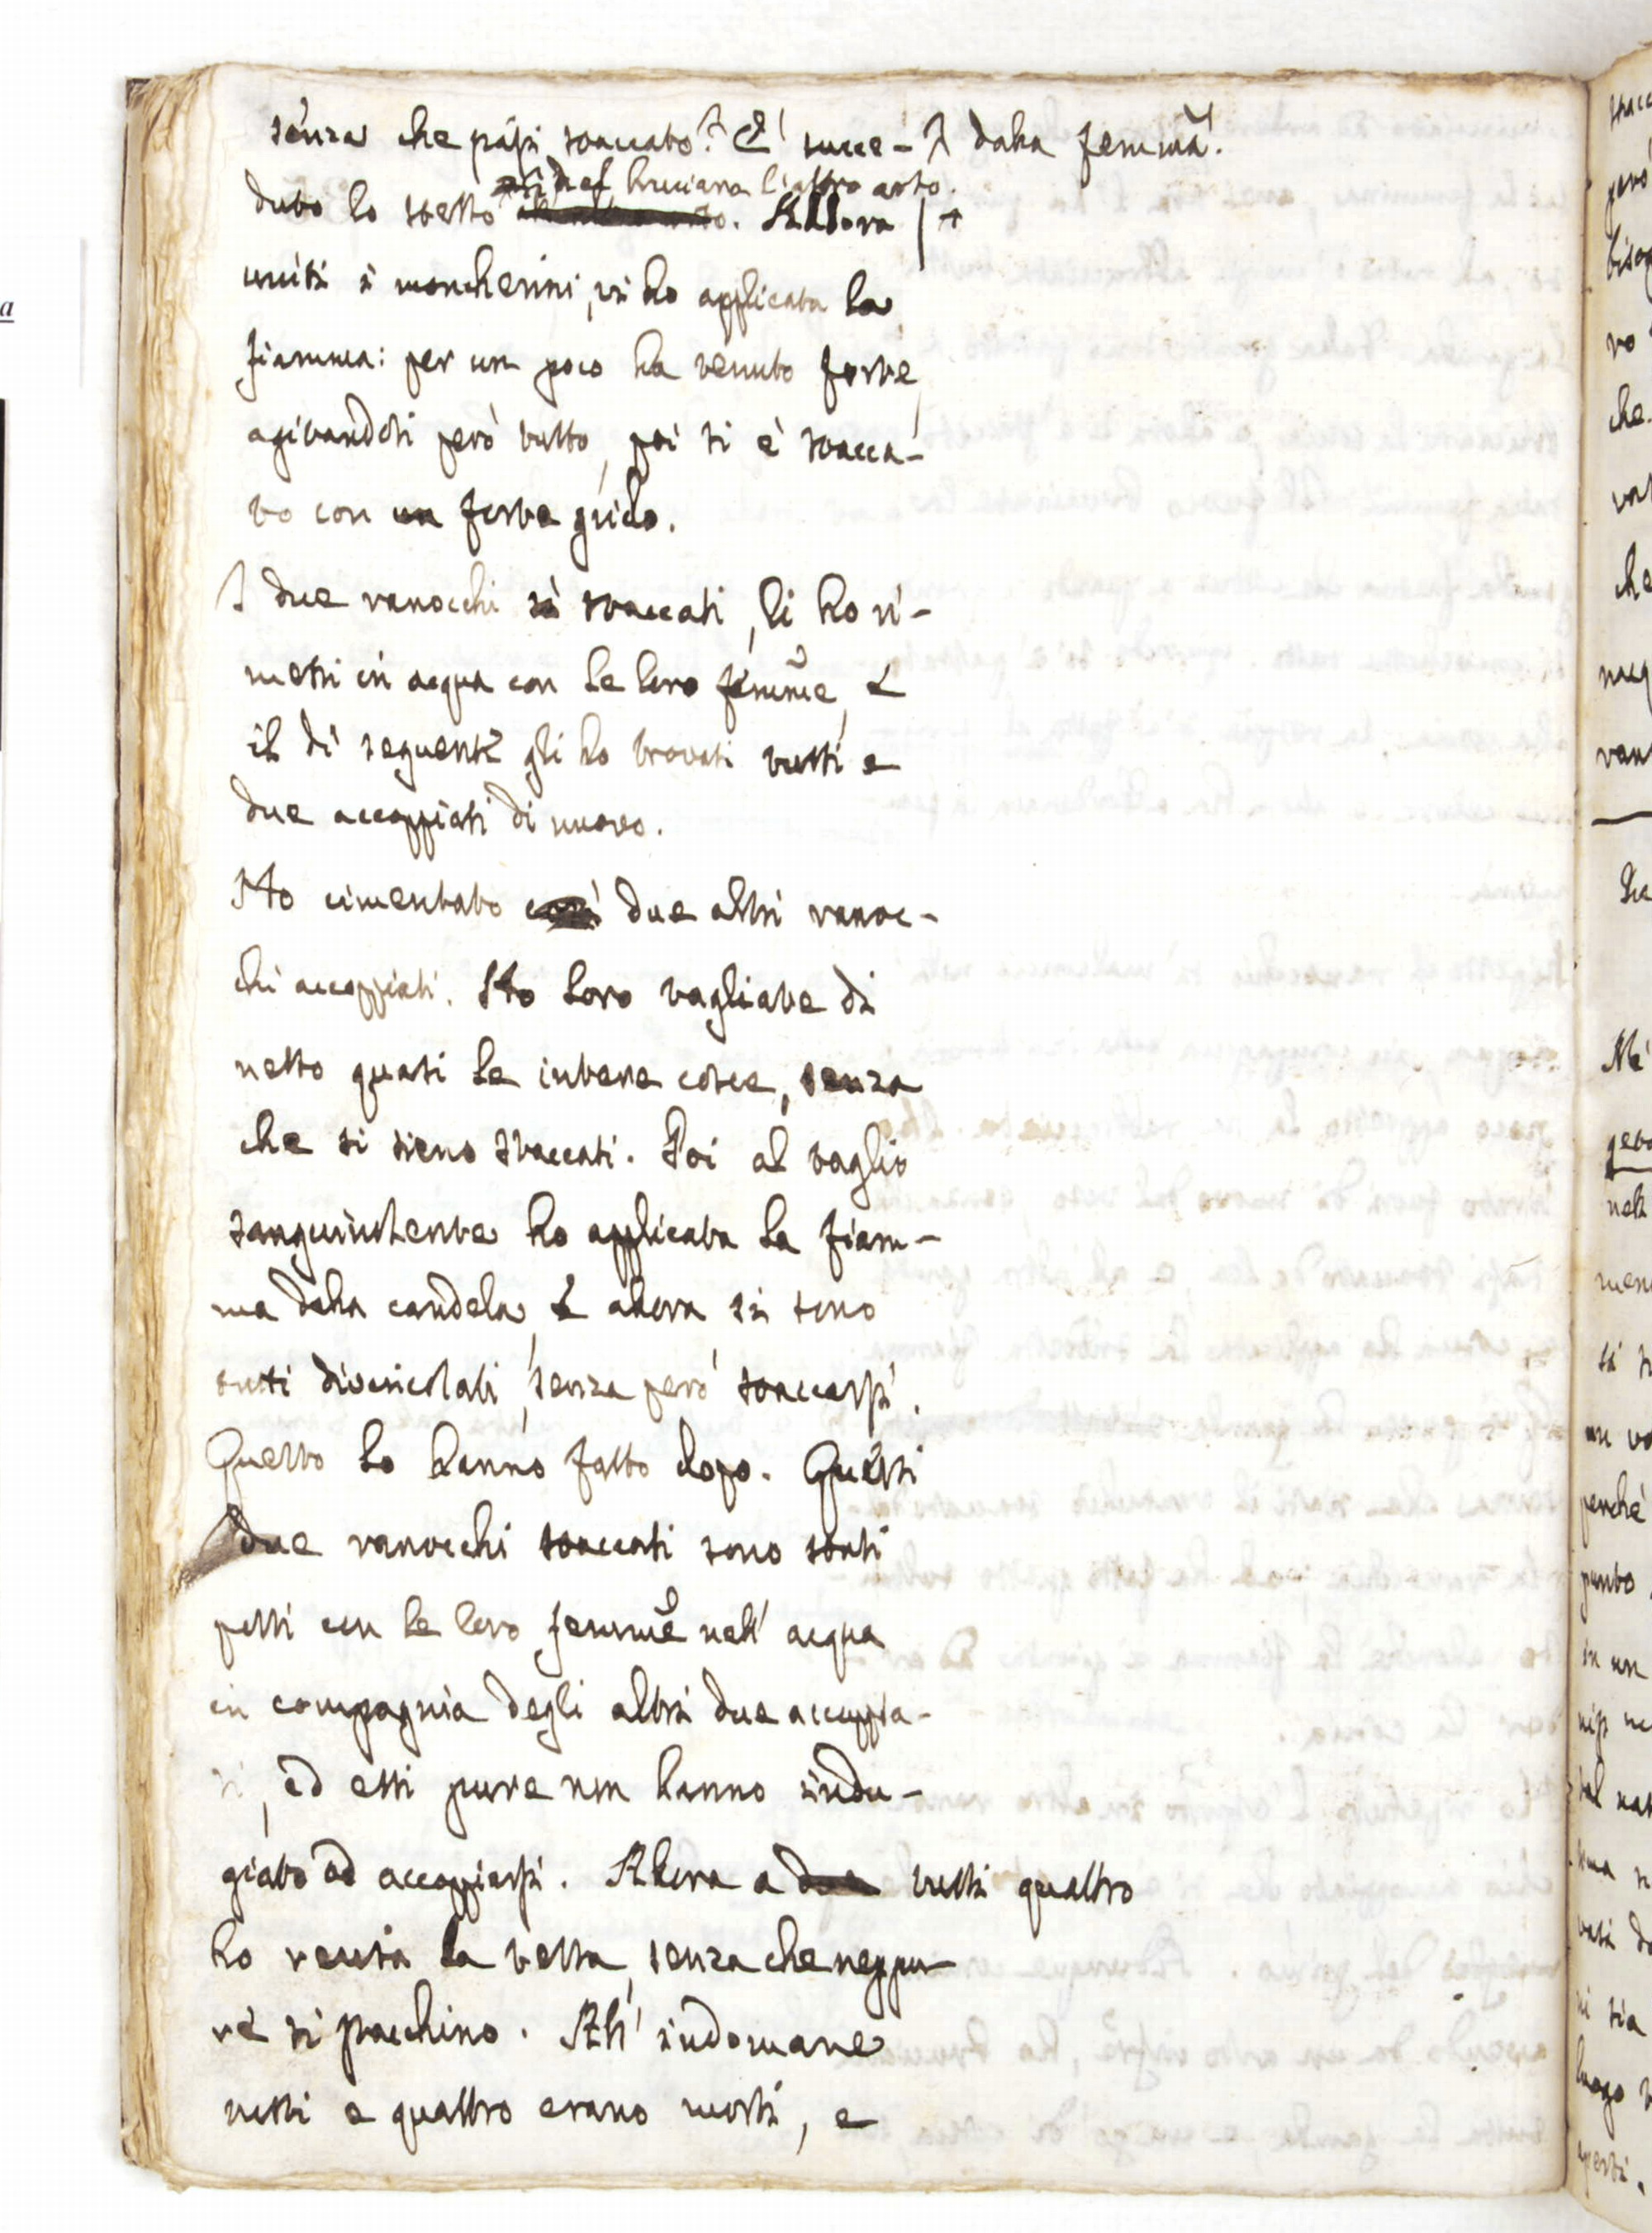 senza che siasi staccato. È succe-
⅄ dalla femmina.
duto lo stesso nel bruciare l'altro arto. Allora | +
uniti i moncherini, vi ho applicata la
fiamma: per un poco ha tenuto forte,
agitandosi però tutto, poi si è stacca-
to con un forte grido.
I due ranocchi sì staccati, li ho ri-
messi in acqua con le loro femmine, e
il dì seguente gli ho trovati tutti e
due accoppiati di nuovo.
Ho cimentato così due altri ranoc-
chi accoppiati. Ho loro tagliate di
netto quasi le intere cosce, senza
che si sieno staccati. Poi al taglio
sanguinolente ho applicata la fiam-
ma della candela, e allora si sono
tutti divincolati, senza però staccarsi.
Questo lo hanno fatto dopo. Questi
due ranocchi staccati sono stati
posti con le loro femmine nell' acqua
in compagnia degli altri due accoppia-
ti, ed essi pure non hanno indu-
giato ad accoppiarsi. Allora a due tutti quattro
ho recisa la testa, senza che neppu-
re si stacchino. All' indomane
tutti e quattro erano morti, e